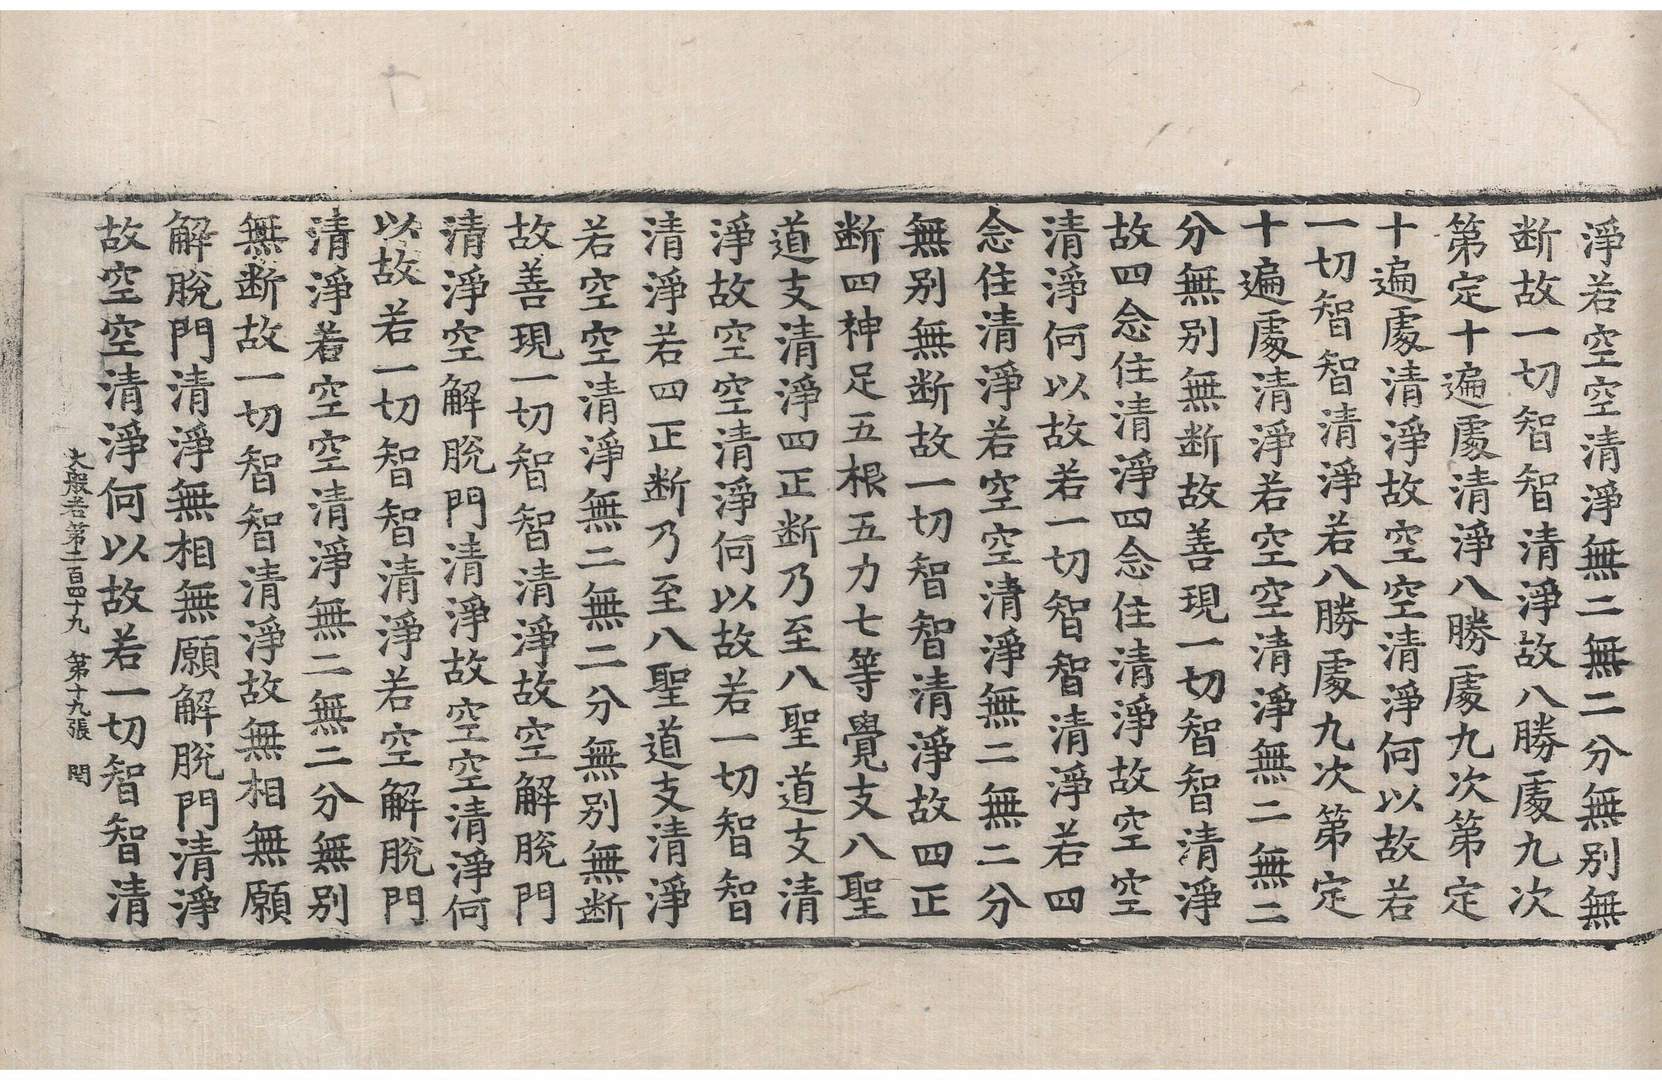 淨若空空清淨無二無二分無別無
断故一切智智清淨故八勝處九次
第定十遍處清淨八勝處九次第定
十遍處清淨故空空清淨何以故若
一切智智清淨若八勝處九次第定
十遍處清淨若空空清淨無二無二
分無別無断故善現一切智智清淨
故四念住清淨四念住清淨故空空
清淨何以故若一切智智清淨若四
念住清淨若空空清淨無二無二分
無別無断故一切智智清淨故四正
断四神足五根五力七等覺支八聖
道支清淨四正断乃至八聖道支清
淨故空空清淨何以故若一切智智
清淨若四正断乃至八聖道支清淨
若空空清淨無二無二分無別無断
故善現一切智智清淨故空解脫門
清淨空解脫門清淨故空空清淨何
以故若一切智智清淨若空解脫門
清淨若空空清淨無二無二分無別
無断故一切智智清淨故無相無願
解脫門清淨無相無願解脫門清淨
故空空清淨何以故若一切智智清
大般若第二百四十九 第十九張 閏